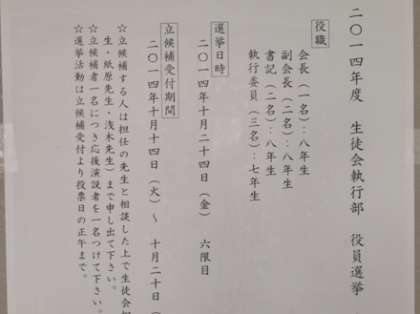 二〇一四年度　生徒会執行部　役員選挙
役職
会長（一名）：八年生
副会長（二名）：八年生
書記（二名）：八年生
執行委員（三名）：七年生
選挙日時
二〇一四年十月二十四日（金）　六限目
立候補受付期間
二〇一四年十月十四日（火）～　十月二十日（
☆立候補する人は担任の先生と相談した上で生徒会担
生・紙原先生・浅木先生）まで申し出て下さい。
☆立候補者一名につき応援演説者を一名つけて下さい。
☆選挙活動は立候補受付より投票日の正午まで。